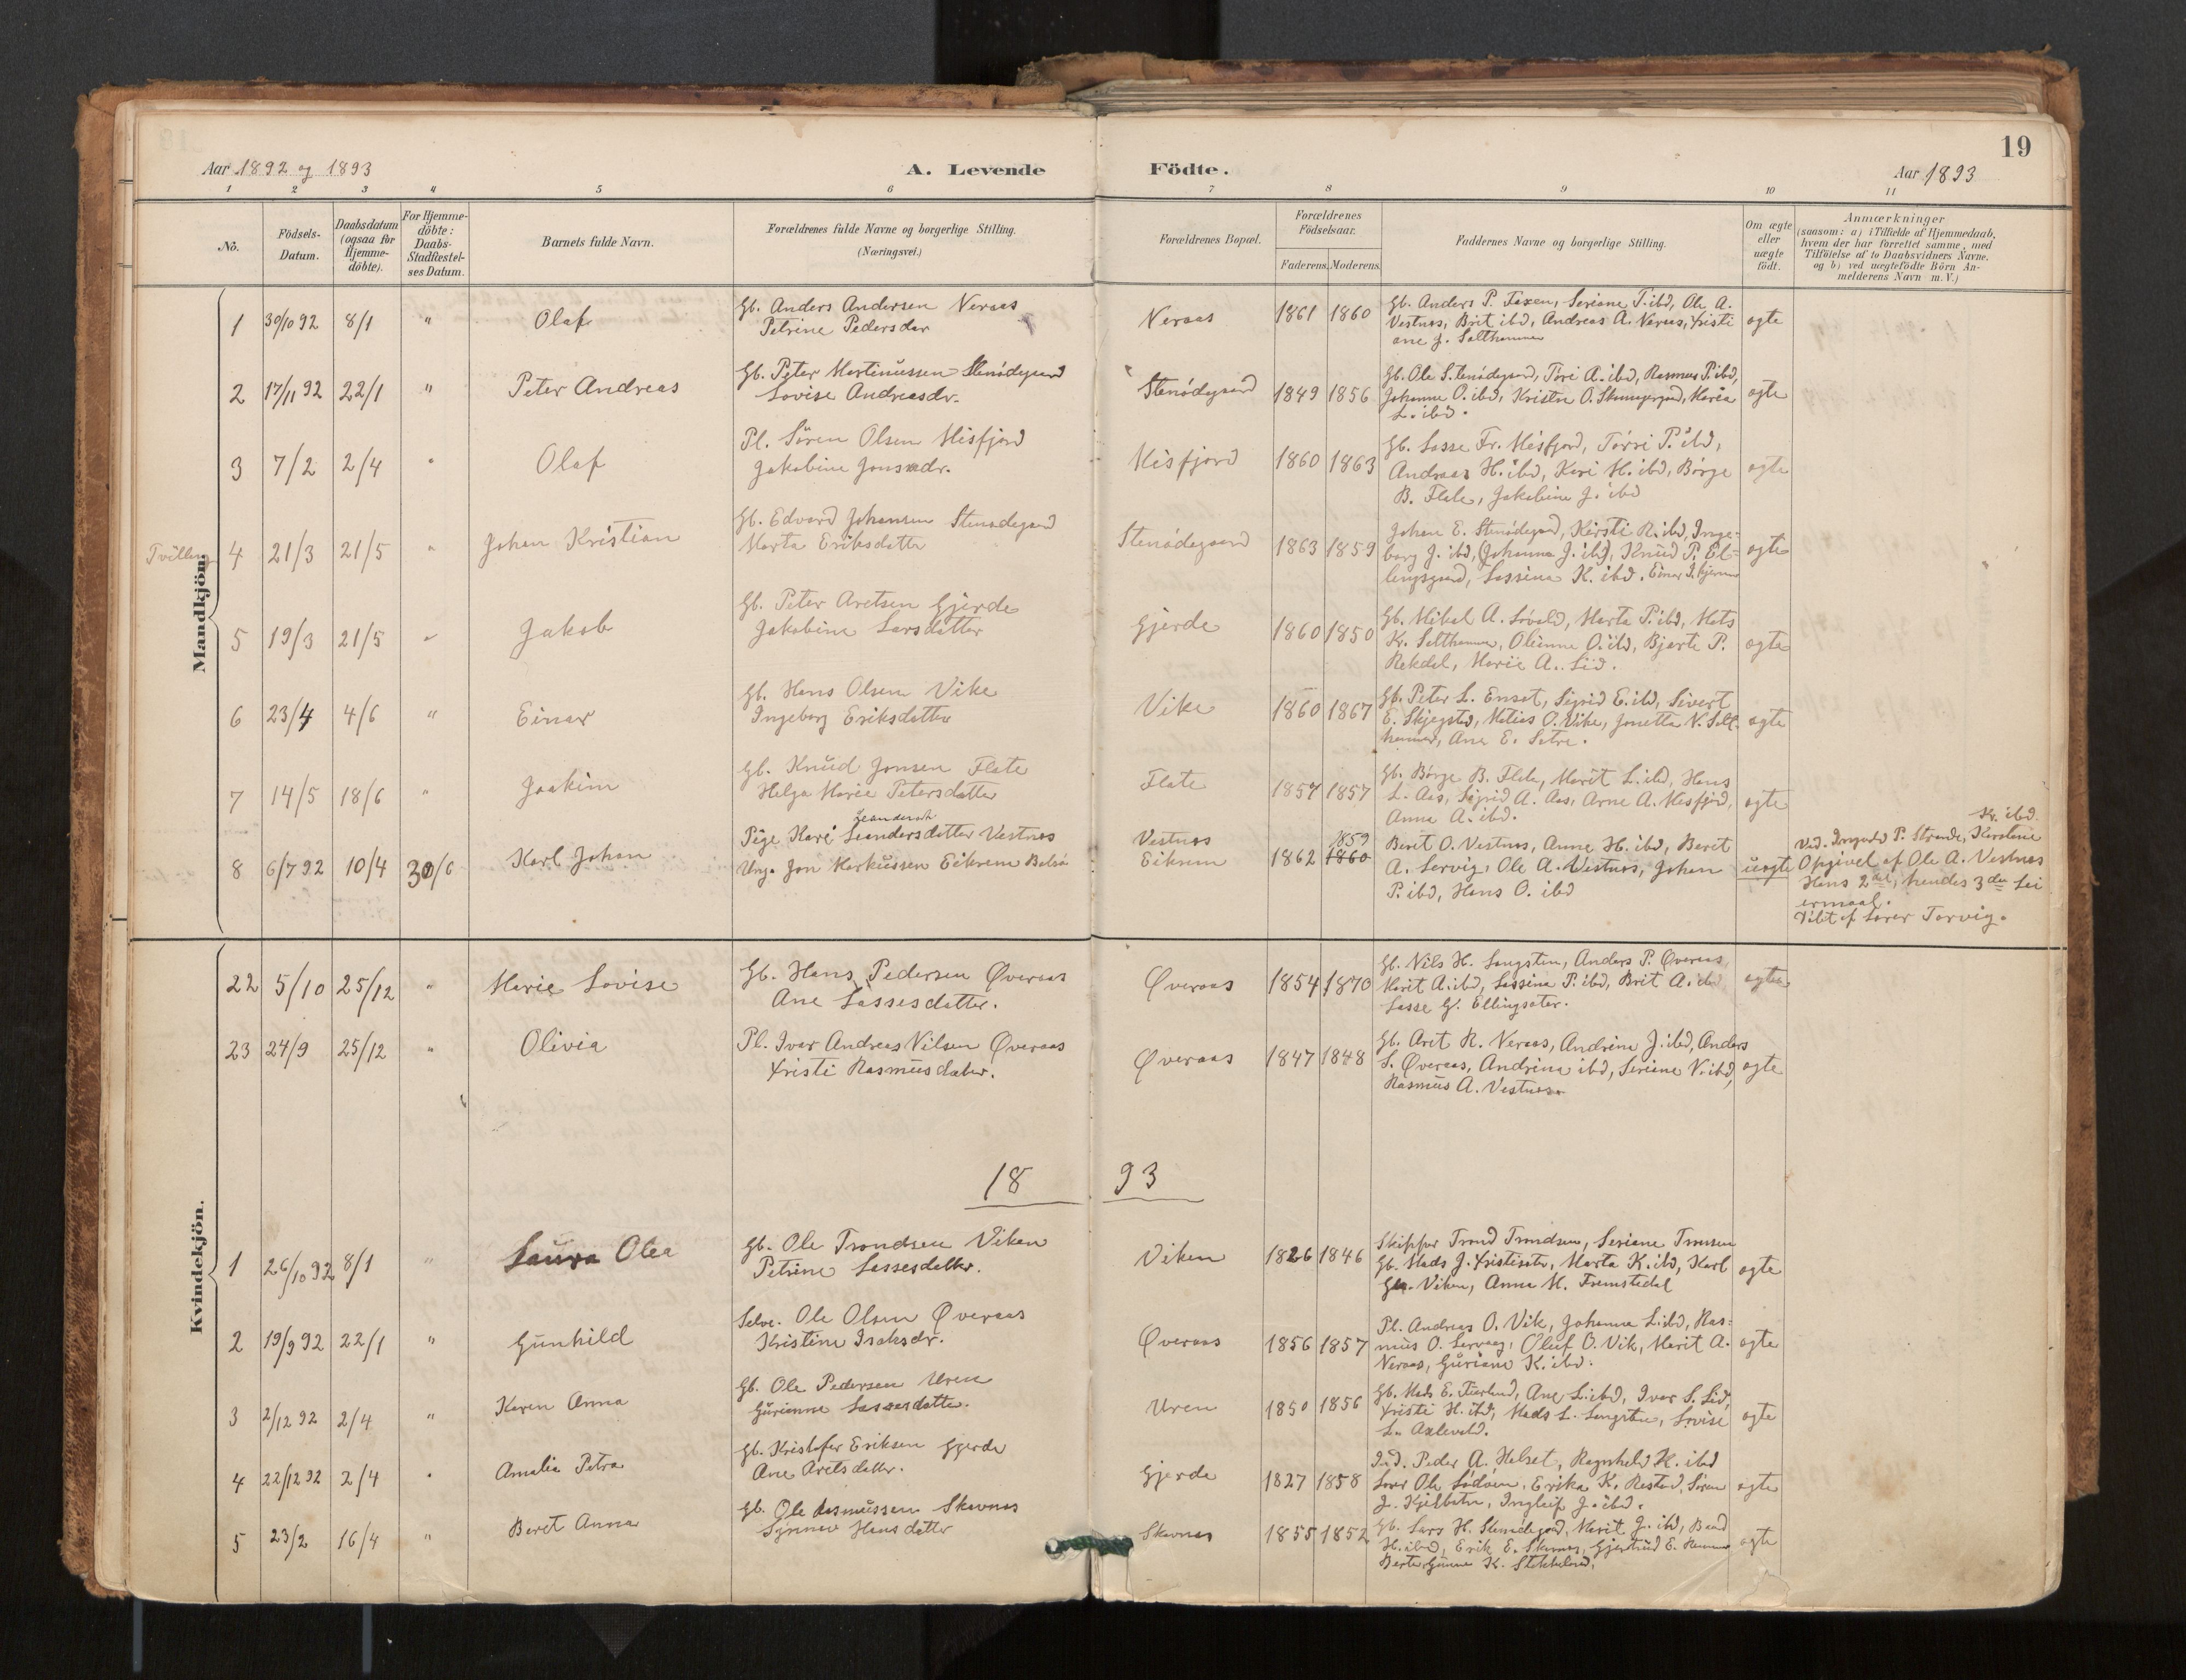 19
Aar 1892 og 1893
A. Levende Födte.
Aar 1893
1 2 3 4 5 6 7 8 9 10 11
No.
Födsels-
Datum.
Daabsdatum
(ogsaa for
Hjemme-
döbte).
For Hjemme-
döbte:
Daabs-
Stadfæstel-
ses Datum.
Barnets fulde Navn.
Forældrenes fulde Navne og borgerlige Stilling.
(Næringsvei.)
Forældrenes Bopæl.
Forældrenes
Födselsaar.
Faderens. Moderens.
Faddernes Navne og borgerlige Stilling.
Om ægte
eller
uægte
födt.
Anmærkninger
(saasom: a) i Tilfælde af Hjemmedaab,
hvem der har forrettet samme, med
Tilföielse af to Daabsvidners Navne.
og b) ved uægtefödte Börn An-
melderens Navn m. V.)
Mandkjön.
1 30/10 92 8/1 " Olaf
Gb. Anders Andersen Neraas
Petrine Pedersdar
Neraas 1861 1860
Gb. Anders P. , Seriane P. ibd, Ole A.
Vestnes, Brit ibd, Andreas A. Neraas, Kristi
ane J. Salthammer
ægte
2 17/11 92 22/1 " Peter Andreas
Gb. Peter Martinussen Stenödegaard
Lovise Andreasdr.
Stenödegaard 1849 1856
Gb. Ole S. Stenödegaard, Töri A. ibd, Rasmus P. ibd,
Johanne O. ibd, Kristen O. , Maria
L. ibd.
ægte
3 7/2 2/4 " Olaf
Pl. Sören Olsen Misfjord
Jakobine Jonsdr.
Misfjord 1860 1863
Gb. Lasse Fr. Misfjord, P. ibd,
Andreas H. ibd, Kari M. ibd, Börge
B. Flate, Jakobine J. ibd
ægte
Tvilling 4 21/3 21/5 " Johan Kristian
Gb. Edvard Johansen Stenödegaard
Marta Eriksdatter
Stenödegaard 1863 1859
Johan E. Stenödegaard, Kirsti R. ibd, Inge-
borg J. ibd, (Johanna J. ibd), Knud P. El-
lingsgaard, Lassina K. ibd. Einar
ægte
5 19/3 21/5 " Jakob
Gb. Peter Aretsen Gjerde
Jakobine Larsdatter
Gjerde 1860 1850
Gb. Mikal A. Lövold, Marta P. ibd, Mats
Kr. Salthammer, Olianna O. ibd, Bjarte P.
Rekdal, Marie A. Lid.
ægte
6 23/4 4/6 " Einar
Gb. Hans Olsen Vike
Ingeborg Eriksdatter
Vike 1860 1867
Gb. Peter L. Enset, Sigrid E. ibd, Sivert
E. Skjegstad, Matias O. Vike, Jonetta N. Salt-
hammer, Ane E. Sætre.
ægte
7 14/5 18/6 " Joakim
Gb. Knud Jonsen Flate
Helga Marie Petersdatter
Flate 1857 1857
Gb. Börge B. Flate, Marit L. ibd, Hans
L. Aas, Sigrid A. Aas, Arne A. Misfjord,
Anna A. ibd.
ægte
8 6/7 92 10/4 30/6 Karl Johan
Leandersdtr
Pige Kari Leandersdatter Vestnes
Ung. Jon Markussen Eikrem Bolsö
Vestnes
Eikrem 1862 1859 1860
Berit O. Vestnes, Anne H. ibd, Berit
A. Servig, Ole A. Vestnes, Johan
P. ibd, Hans O. ibd
uægte
Kr. ibd.
Vid. P. Strande, Karoline
Opgivet af Ole A. Vestnes
Hans 2det, hendes 3die Lei
ermaal.
Döbt af Lærer Torvig.
Kvindekjön.
22 5/10 25/12 " Marie Lovise
Gb. Hans Pedersen Øveraas
Ane Lassesdatter.
Øveraas 1854 1870
Gb. Nils H. Langsten, Anders P. Øveraas,
Marit A. ibd, Lassina P. ibd, Brit A. ibd
Lasse G. Ellingsæter.
ægte
23 24/9 25/12 " Olivia
Pl. Ivar Andreas Nilsen Øveraas
Kristi Rasmusdatter.
Øveraas 1847 1848
Gb. Aret K. Neraas, Andrine J. ibd, Anders
S. Øveraas, Andrina ibd, Seriane N. ibd,
Rasmus A. Vestnes.
ægte
18 93
1 26/10 92 8/1 " Laura Olea
Gb. Ole Trondsen Viken
Petrine Lassesdatter.
Viken 1826 1846
Skipper Trond Trondsen, Seriane Tronsen
Gb. Mads J. Kristisæter, Marta K. ibd, Karl
Viken, Anna M. Fremstedal
ægte
2 19/9 92 22/1 " Gunhild
Selve. Ole Olsen Øveraas
Kristine Isaksdr.
Øveraas 1856 1857
Pl. Andreas O. Vik, Johanna L. ibd, Ras-
mus O. , Oluf O. Vik, Marit A.
Neraas, Guriane K. ibd.
ægte
3 2/12 92 2/4 " Karen Anna
Gb. Ole Pedersen Uren
Gurianne Lassesdatter.
Uren 1850 1856
Gb. Mads E. , Ane L. ibd, Ivar S. Lid,
Kristi H. ibd, Mads L. Langsten, Lovise
L. Axlevold.
ægte
4 22/12 92 2/4 " Amalia Petra
Gb. Kristofer Eriksen Gjerde
Ane Aretsdatter.
Gjerde 1827 1858
Ind. Peder A. Helset, Ragnhild K. ibd
Lærer Ole , Erika K. Restad, Sören
J. , J. ibd.
ægte
5 23/2 16/4 " Beret Anna
Gb. Ole Rasmussen Skavnes
Synneve Hansdatter
Skavnes 1855 1852
Gb. Lars H. Stenödegaard, Marit J. ibd,
H. ibd, Erik E. Skavnes, Gjertrud E.
K.
ægte